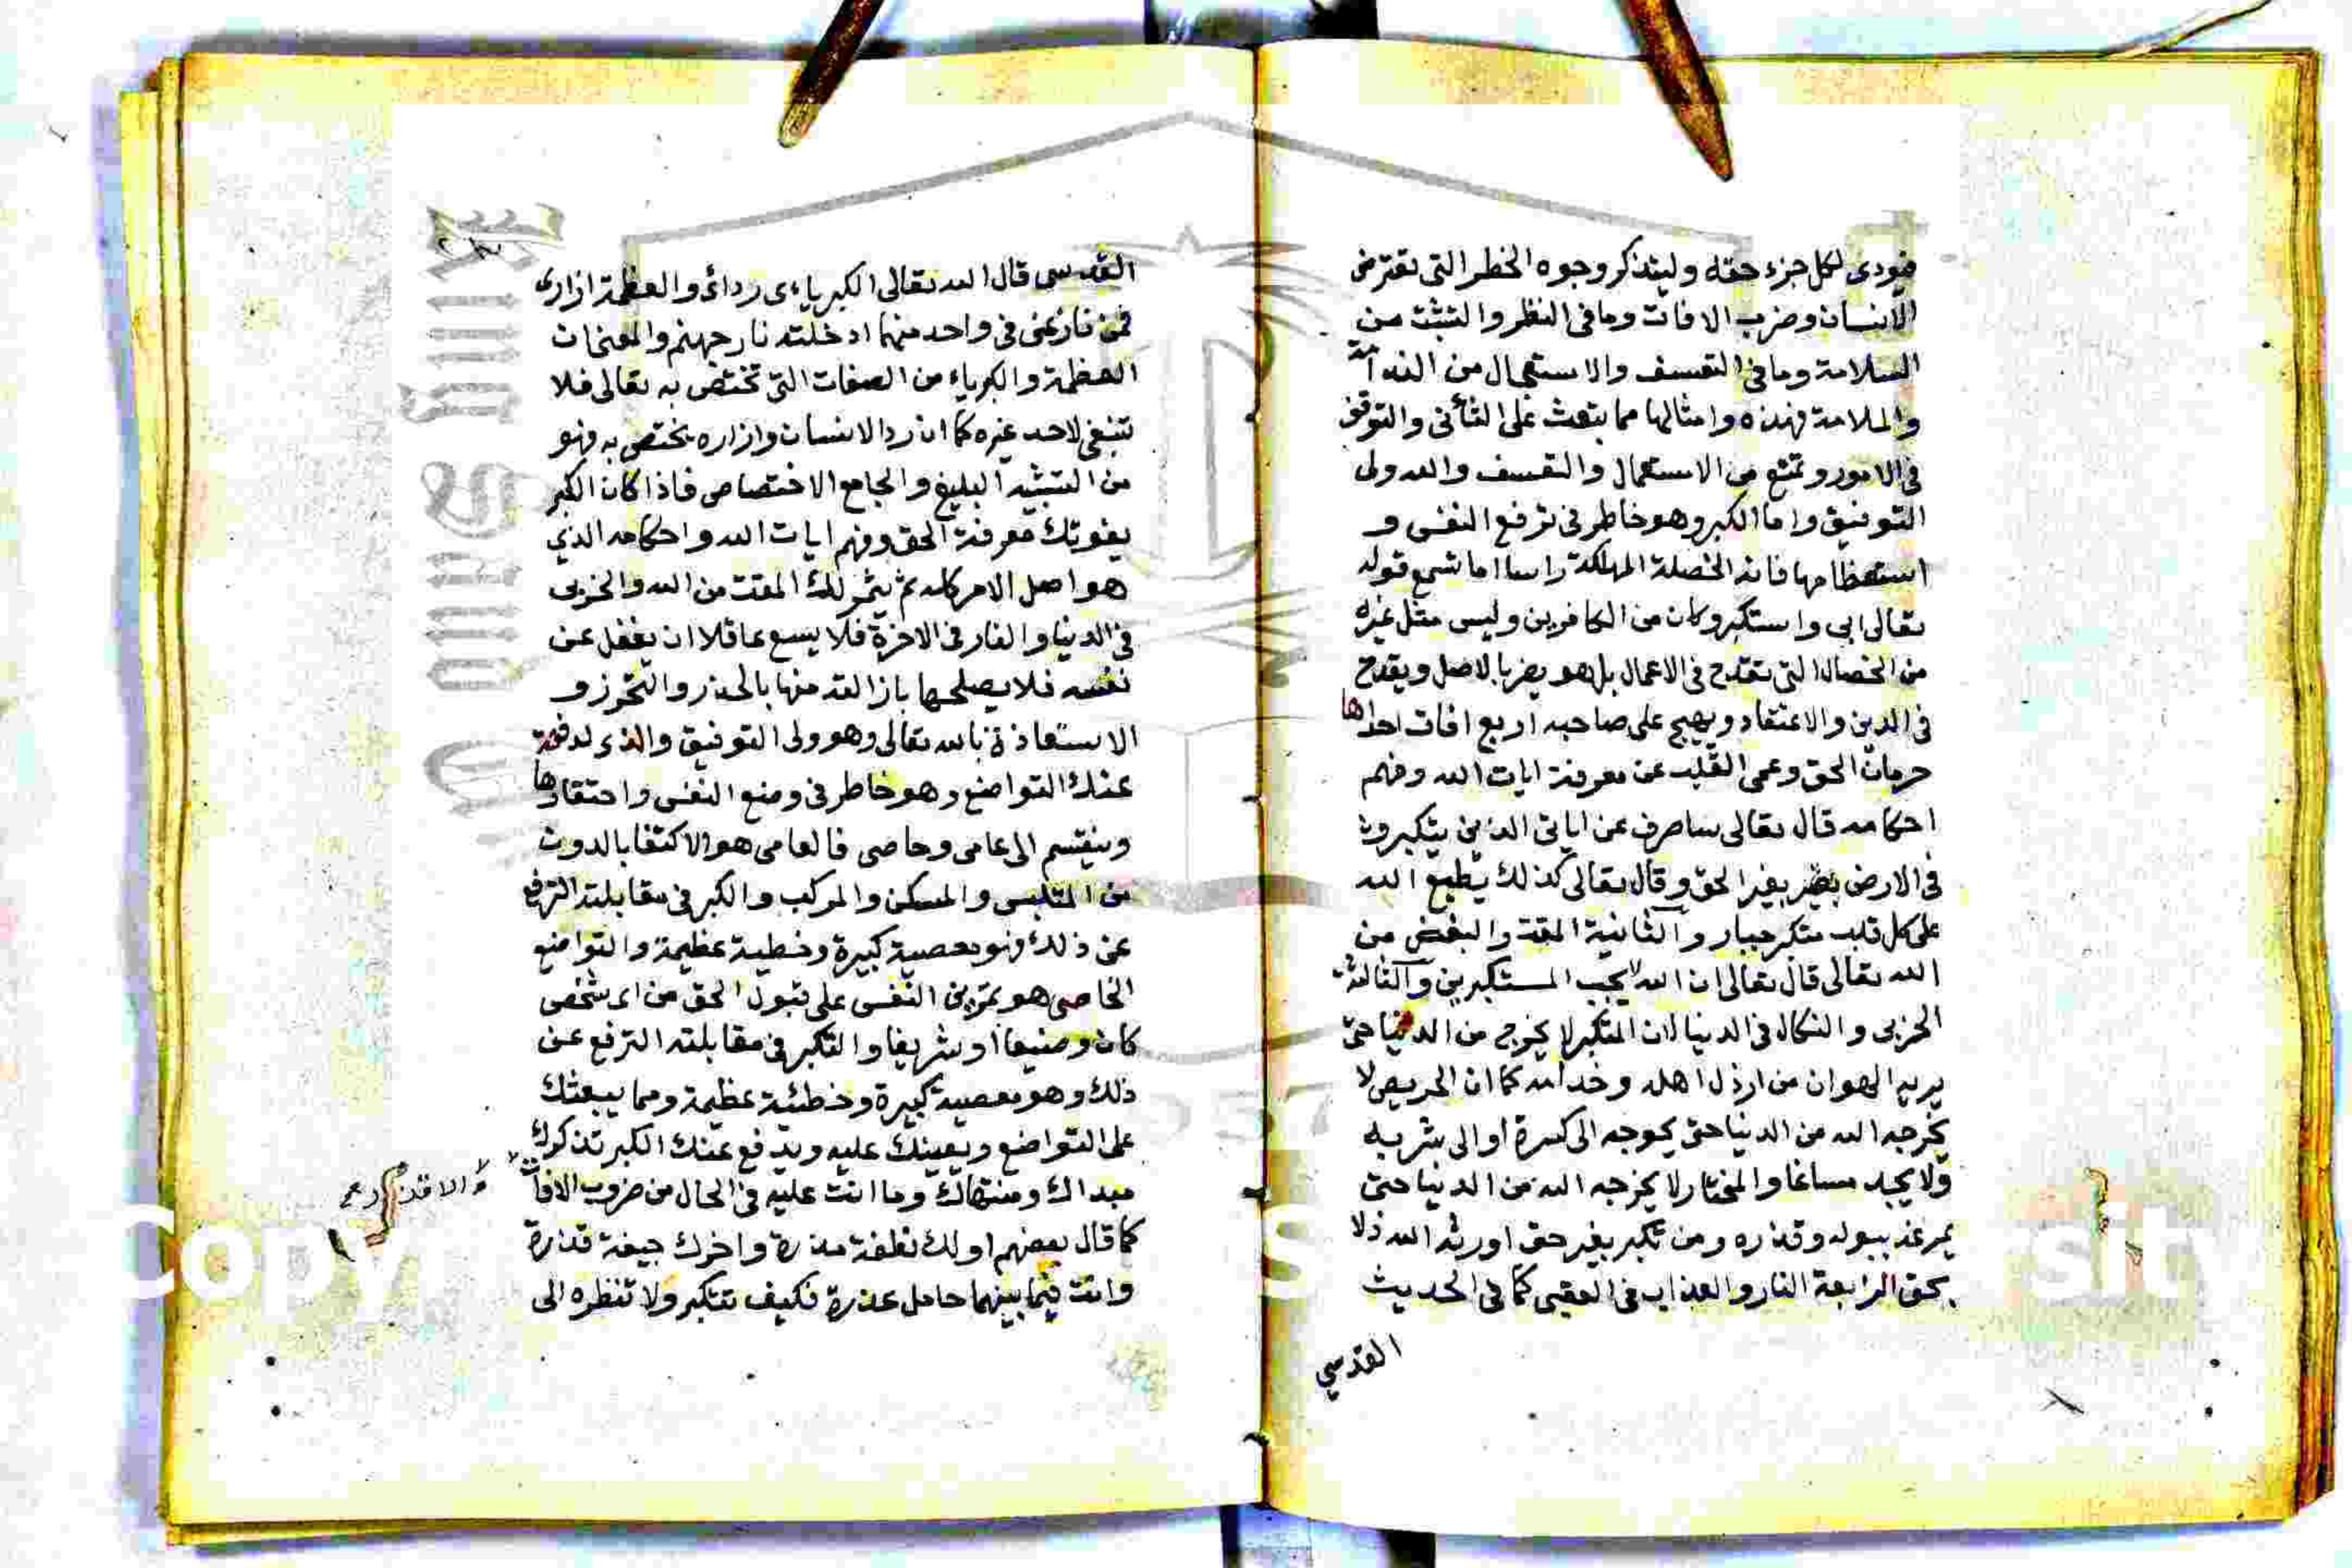 فيودى لكل جزء حقه وليتذكر وجوه الخطر التى تعترض
الانسان وضرب الافات وما فى النظر والتثبت من
السلامة وما فى التعسف والاستعجال من الندامة
والملامة فهذه وامثالها مما يبعث على التأنى والتوقف
فى الامور وتمنع من الاستعجال والتعسف والله ولى
التوفيق واما الكبر وهو خاطر فى ترفع النفس و
استعظامها فانه الخصلة المهلكة راسا اما تسمع قوله
تعالى ابى واستكبر وكان من الكافرين وليس مثل غيره
من الخصال التى تقدح فى الاعمال بل هو يضر بالاصل ويقدح
فى الدين والاعتقاد ويهيج على صاحبه اربع افات احداها
حرمان الحق وعمى القلب عن معرفة ايات الله وفهم
احكامه قال تعالى ساصرف عن اياتى الذين يتكبرون
فى الارض بغير الحق وقال تعالى كذلك يطبع الله
على كل قلب متكبر جبار والثانية المقت والبغض من
الله تعالى قال تعالى ان الله لا يحب المستكبرين والثالثة
الخزى والنكال فى الدنيا لان المتكبر لا يخرج من الدنيا حتى
يريه الهوان من ارذل اهله وخدامه كما ان الحريص لا
يخرجه الله من الدنيا حتى يحوجه الى كسرة او الى شربة
ولا يجد مساغا والمختار لا يخرجه الله من الدنيا حتى
يمرغه ببوله وقذره ومن تكبر بغير حق اورثه الله ذلا
بحق الرابعة النار والعذاب فى العقبى كما فى الحديث
القدسي
القدسى قال الله تعالى الكبرياءى ردائى والعظمة ازارى
فمن نازعنى فى واحد منهما ادخلته نار جهنم والمعنى ان
العظمة والكبرياء من الصفات التى تختص به تعالى فلا
تنبغى لاحد غيره كما ان ردا الانسان وازاره يختص به فهو
من التشبيه البليغ والجامع الاختصاص فاذا كان الكبر
يفوتك معرفة الحق وفهم ايات الله واحكامه الذي
هو اصل الامر كله ثم يثمر لك المقت من الله والخزى
فى الدنيا والنار فى الاخرة فلا يسع عاقلا ان يغفل عن
نفسه فلا يصلحها بازالته منها بالحذر والتحرز و
الاستعاذة بالله تعالى وهو ولى التوفيق والذى يدفعه
عنك التواضع وهو خاطر فى وضع النفس واحتقارها
وينقسم الى عامى وخاصى فالعامى هو الاكتفا بالدون
من الملبس والمسكن والمركب والكبر فى مقابلته الترفع
عن ذلك وهو معصية كبيرة وخطية عظيمة والتواضع
الخاصى هو تمرين النفس على قبول الحق من اى شخص
كان وضيعا او شريفا والتكبر فى مقابلته الترفع عن
ذلك وهو معصية كبيرة وخطئية عظيمة ومما يبعثك
على التواضع ويعينك عليه ويدفع عنك الكبر تذكرك
مبداك ومنتهاك وما انت عليه فى الحال من ضروب الافات
كما قال بعضهم اولك نطفة مذرة واخرك جيفة قذرة
وانت فيما بينهما حامل عذرة فكيف تتكبر ولا تنظره الى
Copy
1957